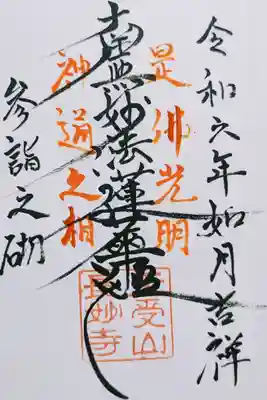 令和六年如月吉祥
是佛光明
南無妙法蓮華經
神通之相
参詣之砌
受山
妙寺